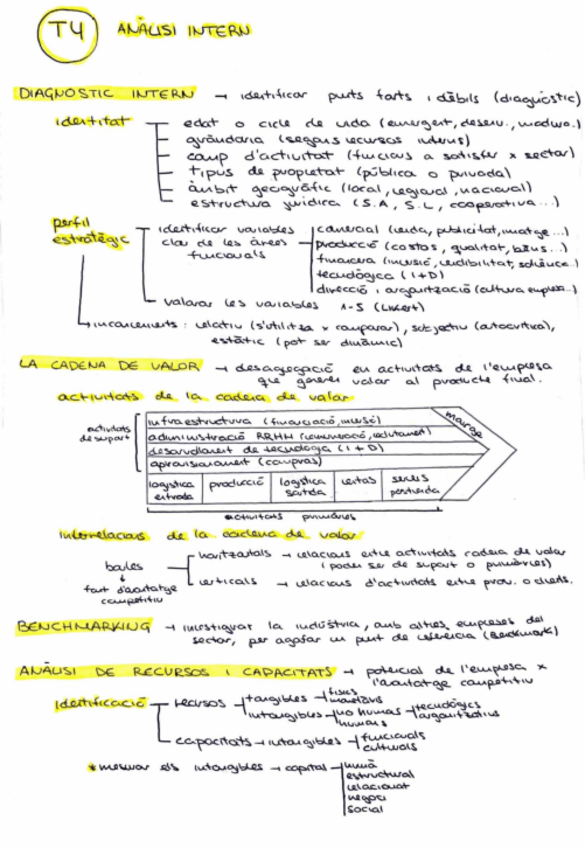 T4 ANÀLISI INTERN
DIAGNOSTIC INTERN → identificar punts forts i dèbils (diagnòstic)
identitat
edat o cicle de vida (emergent, desenv., maduro..)
grandària (segons recursos interns)
camp d'activitat (funcions a satisfer x sector)
tipus de propietat (pública o privada)
àmbit geogràfic (local, regional, nacional)
estructura jurídica (S.A, S.L, cooperativa...)
perfil estratègic
identificar variables clau de les àrees funcionals
comercial (venda, publicitat, imatge...)
producció (costos, qualitat, béns...)
financera (inversió, rendibilitat, solvènce..)
tecnològica (I+D)
direcció i organització (cultura empresa..)
valorar les variables 1-5 (Likert)
inconvenients: relatiu (s'utilitza x comparar), subjectiu (autocrítica),
estàtic (pot ser dinàmic)
LA CADENA DE VALOR → desagregació en activitats de l'empresa
que generen valor al producte final.
activitats de la cadena de valor
activitats de suport
infraestructura (financiació, inversió)
administració RRHH (remuneració, reclutament)
desarrollament de tecnologia (I+D)
aprovisionament (compras)
marge
logística entrada
producció
logística sortida
ventas
serveis postvenda
activitats primàries
Interrelacions de la cadena de valor
bases
↓
font d'avantatge
competitiu
horitzontals → relacions entre activitats cadena de valor
(poden ser de suport o primàries)
verticals → relacions d'activitats entre prov. o clients.
BENCHMARKING → investigar la indústria, amb altres empreses del
sector, per agafar un punt de referència (Benchmark)
ANÀLISI DE RECURSOS I CAPACITATS → potencial de l'empresa x
l'avantatge competitiu
Identificació
recursos
tangibles
físics
monetaris
intangibles
no humans
tecnològics
organitzatius
humans
capacitats → intangibles
funcionals
culturals
* mesurar els intangibles → capital
humà
estructural
relacional
negoci
social